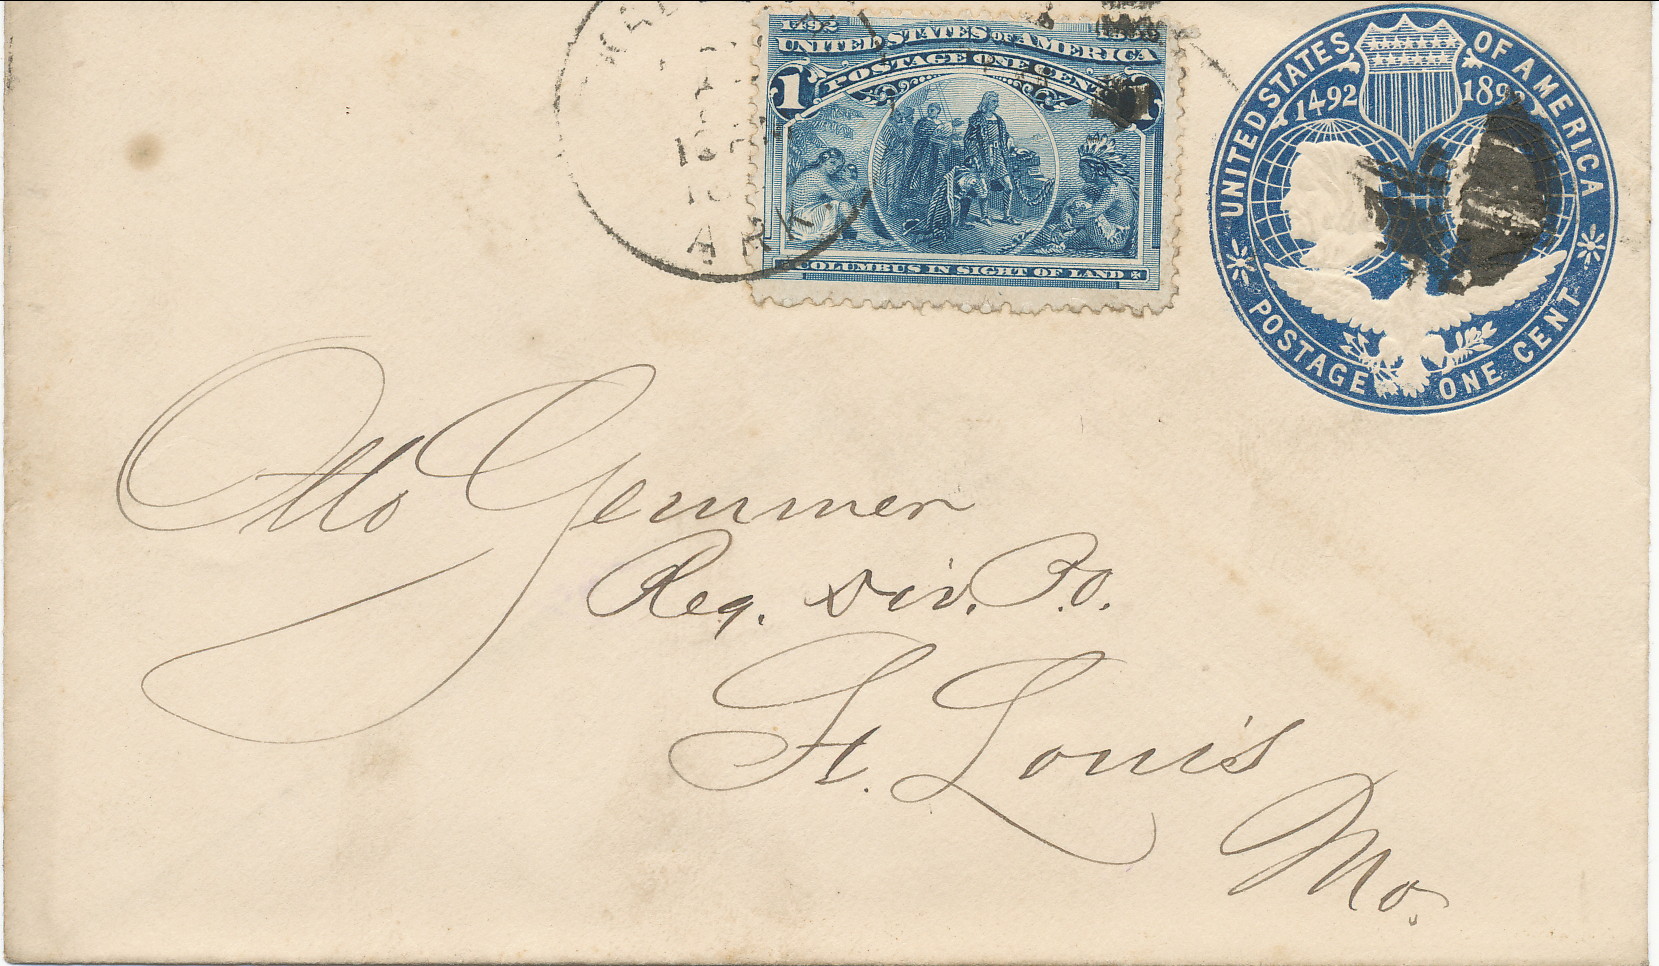 ARK.
1492
UNITED STATES OF AMERICA
POSTAGE ONE CENT
1
1
COLUMBUS IN SIGHT OF LAND
UNITED STATES OF AMERICA
1492 1892
POSTAGE ONE CENT
Otto Gemmer
Reg. Div. P.O.
St. Louis
Mo.